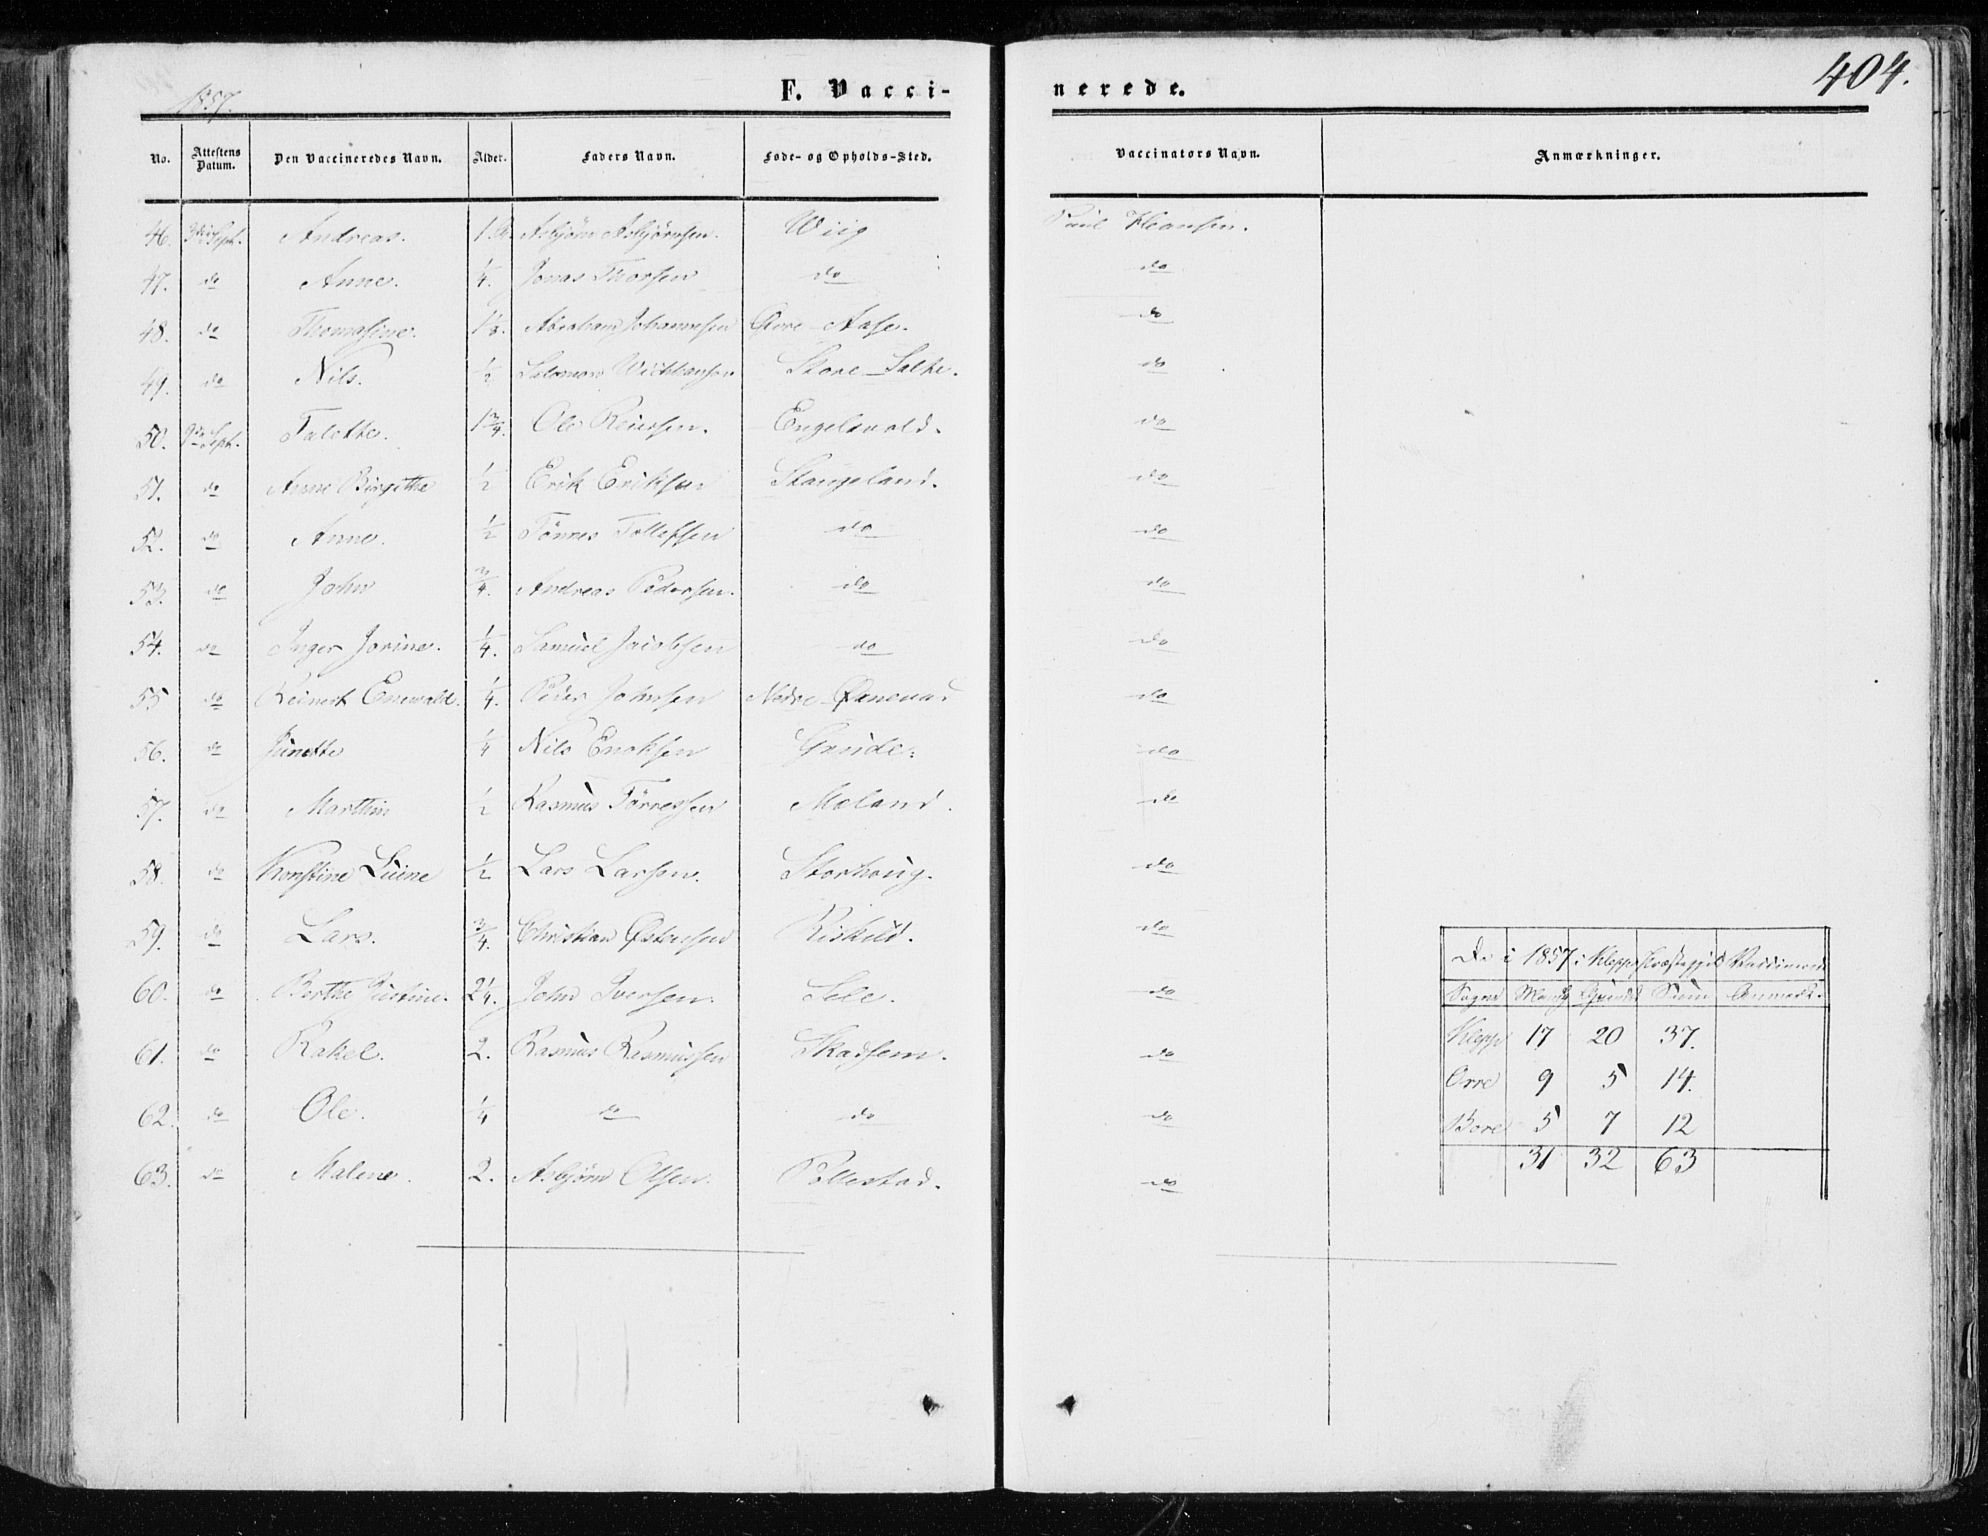 404.
1857.
F. Vaccinerede.
No. Attestens Datum. Den Vaccineredes Navn. Alder. Faders Navn. Føde- og Opholds-Sted. Vaccinators Navn. Anmærkninger.
46. 3die Sept. Andreas. Asbjörn Asbjörnsen. Wiig Paul Hansen.
47. do Anne. 1/4. Jonas Thorsen do do
48. do Thomasine. Abraham Johannesen Øvre Aase. do
49. do Nils. 1/2 Salomon Store Salte. do
50. 9de Sept. Talette. 1 3/4. Ole Reiersen. Engelsvold. do
51. do Anne Birgithe 1/2 Erik Eriksen Stangeland. do
52. do Anne. 1/2 Tönnes Tollefsen do do
53. do John 3/4. Andreas Pedersen. do do
54. do Inger Jorine. 1/4. Samuel Jacobsen do do
55 do Reinert Enewald. 1/4. Peder Johnsen Nedre Øxnevad do
56. do Junette 1/4 Nils Enoksen Grude. do
57. do Marthin 1/2 Rasmus Törresen Moland. do
58. do Konstine Luine 1/2 Lars Larsen. Storhoug. do
59. do Lars. 3/4. Christian Østensen Riskild. do
60. do Berthe Justine. 2 1/4. John Iversen. Sele. do
61. do Rakel. 2. Rasmus Rasmussen Skadsem. do
62. do Ole. 1/4 do do do
63. do Malene. 2. Asbjörn Olsen. Pollestad. do
De i 1857 i Klepps Præstegjeld Vaccinerede
Sogne Mandk Qvindk Sum Anmærk.
Klepp 17 20 37.
Orre 9 5 14.
Bore 5 7 12
31 32 63